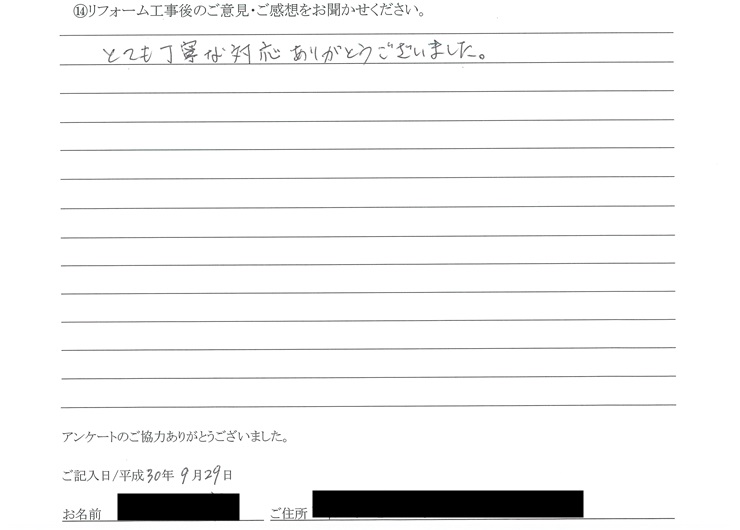 ⑭リフォーム工事後のご意見・ご感想をお聞かせください。
とても丁寧な対応ありがとうございました。
アンケートのご協力ありがとうございました。
ご記入日/平成30年 9月29日
お名前 ご住所